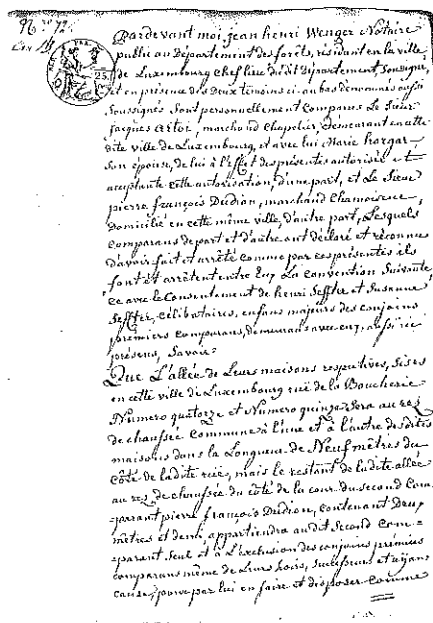 Pardevant moi, jean henri Wenger Notaire
public au Département des forêts, résidant en la ville
de Luxembourg Chef lieu du dit Département, Soussigné,
et en présence des Deux témoins ci-au bas dénommés aussi
Soussignés Sont personnellement Comparus Le Sieur
Jacques, marchand Chapelier, Demeurant en cette
dite ville de Luxembourg, et avec lui Marie
Son épouse, de lui à l'Effet des présentes autorisée et
acceptante cette autorisation, d'une part, et Le Sieur
pierre françois Dudion, marchand Chamoiseur,
Domicilié en cette même ville, d'autre part, Lesquels
Comparans de part et d'autre ont déclaré et reconnu
d'avoir fait et arrêté comme par ces présentes ils
font et arrêtent entre Eux La Convention Suivante,
ce avec le Consentement de henri Seffter et Susanne
Seffter, Célibataires, enfans majeurs des conjoins
premiers Comparans, demeurans avec eux, aussi ici
présens, Savoir.
Que L'allée de Leurs maisons respectives, Sises
en cette ville de Luxembourg rue de la Boucherie
Numero quatorze et Numero quinze Sera au rez
de chaussée Commune à l'une et à l'autre des dites
maisons dans la Longueur de Neuf mètres du
Côté de la dite rue, mais le restant de la dite allée
au rez de chaussée du côté de la cour du second Com-
parant pierre françois Dudion, contenant Deux
mètres et demi, appartiendra au dit Second Com-
parant Seul et à L'exclusion des conjoins premiers
comparans même de Leurs hoirs, successeurs et aÿans
cause, pour par lui en faire et disposer Comme